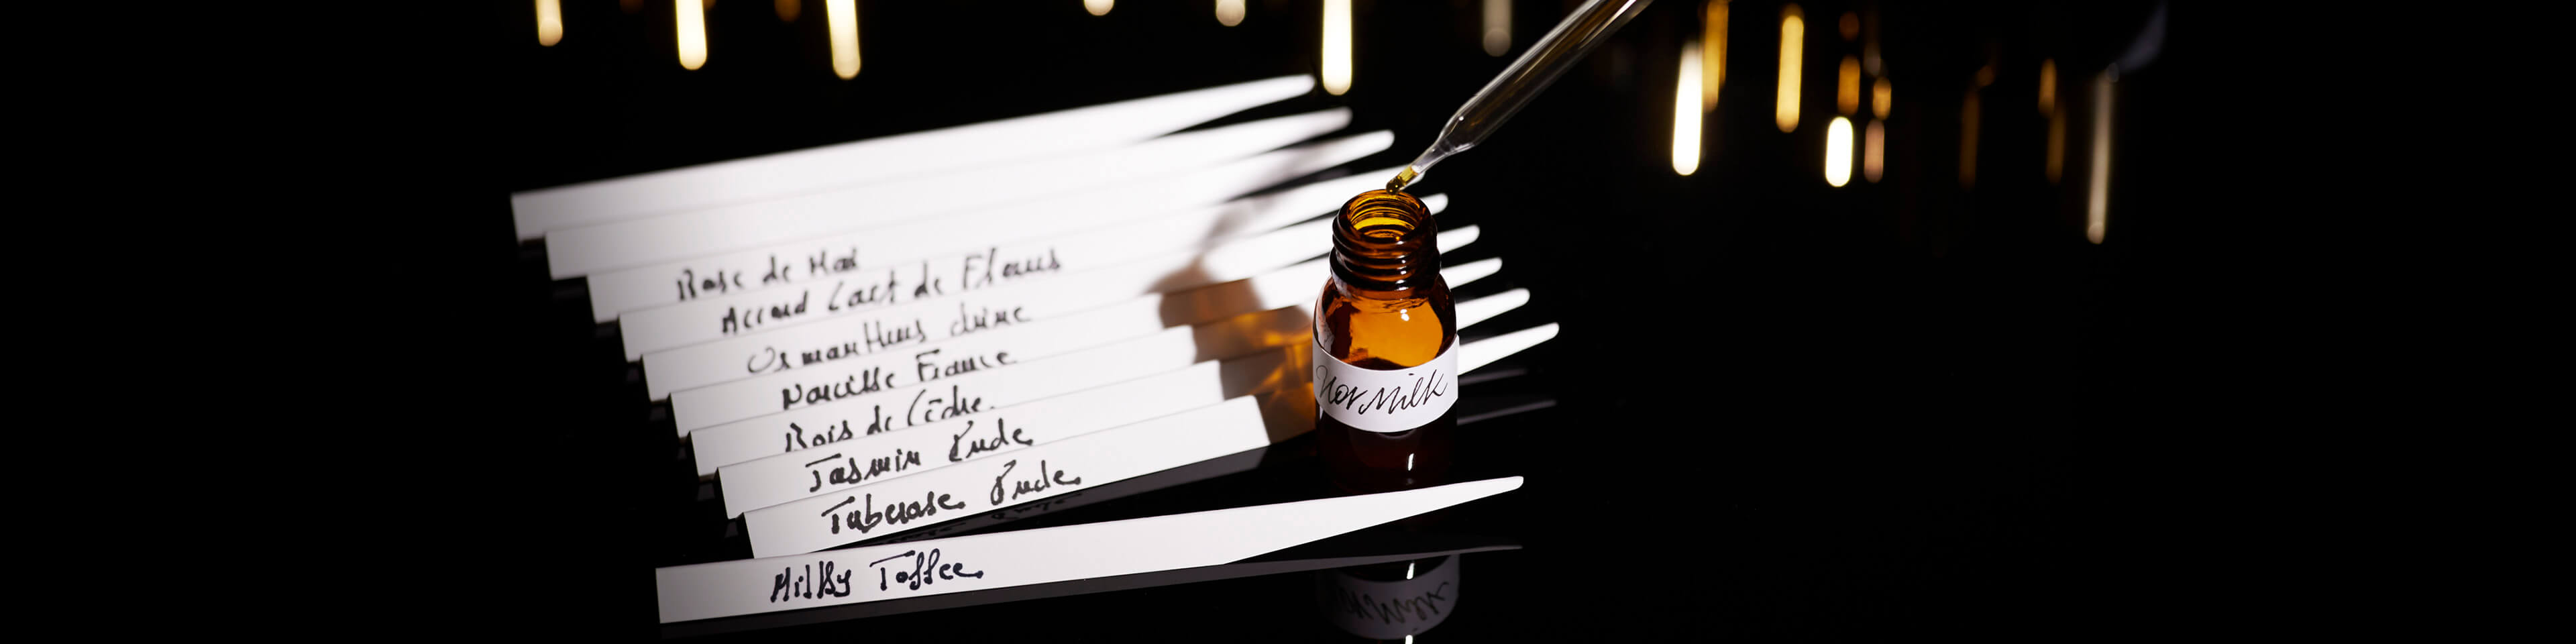 Rose de Mai
Accord Lact de Fleurs
Osmanthus chine
Narcisse France
Bois de Cèdre
Jasmin Inde
Tubereuse Inde
Hot Milk
Milky Toffee